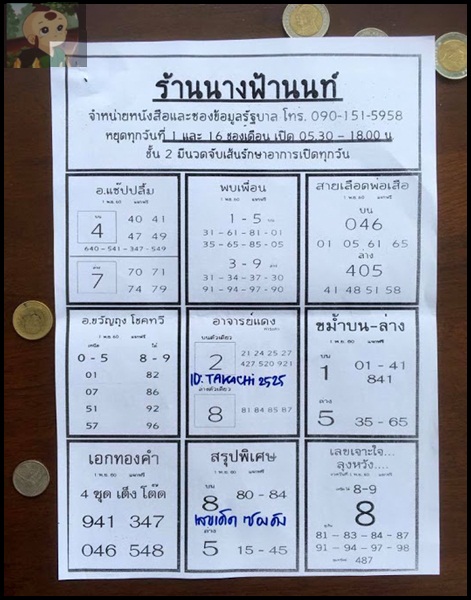 ร้านนางฟ้านนท์
จำหน่ายหนังสือและซองข้อมูลรัฐบาล โทร. 090-151-5958
หยุดทุกวันที่ 1 และ 16 ของเดือน เปิด 05.30 – 18.00 น
ชั้น 2 มีนวดจับเส้นรักษาอาการเปิดทุกวัน
อ.แช๊ปปลิ้ม
1 พ.ย. 60 แจกฟรี
บน
4
40 41
47 49
640-541-347-549
7
70 71
74 79
พบเพื่อน
1 พ.ย. 60 แจกฟรี
1 - 5 บน
31-61-81-01
35-65-85-05
3 - 9 ล่าง
31-34-37-30
91-94-97-90
สายเลือดพ่อเสือ
1 พ.ย. 60 แจกฟรี
บน
046
01 05 61 65
ล่าง
405
41 48 51 58
อ.ขวัญถุง โชคทวี
1 พ.ย. 60 แจกฟรี
0 - 5 8 - 9
01 82
07 86
51 92
57 96
อาจารย์แดง
1 พ.ย. 60 แจกฟรี
บนตัวเดียว
2
21 24 25 27
427 520 921
ID: TAKACHI 2525
ล่างตัวเดียว
8
81 84 85 87
ขม้ำบน-ล่าง
1 พ.ย. 60 แจกฟรี
บน
1
01 - 41
841
ล่าง
5
35 - 65
เอกทองคำ
1 พ.ย. 60 แจกฟรี
4 ชุด เต็ง โต๊ด
941 347
046 548
สรุปพิเศษ
1 พ.ย. 60 แจกฟรี
บน
8
80 - 84
เลขเด็ด ซองดัง
ล่าง
5
15 - 45
เลขเจาะใจ...
ลุงหวัง....
8-9
8
81 - 83 - 84 - 87
91 - 94 - 97 - 98
487